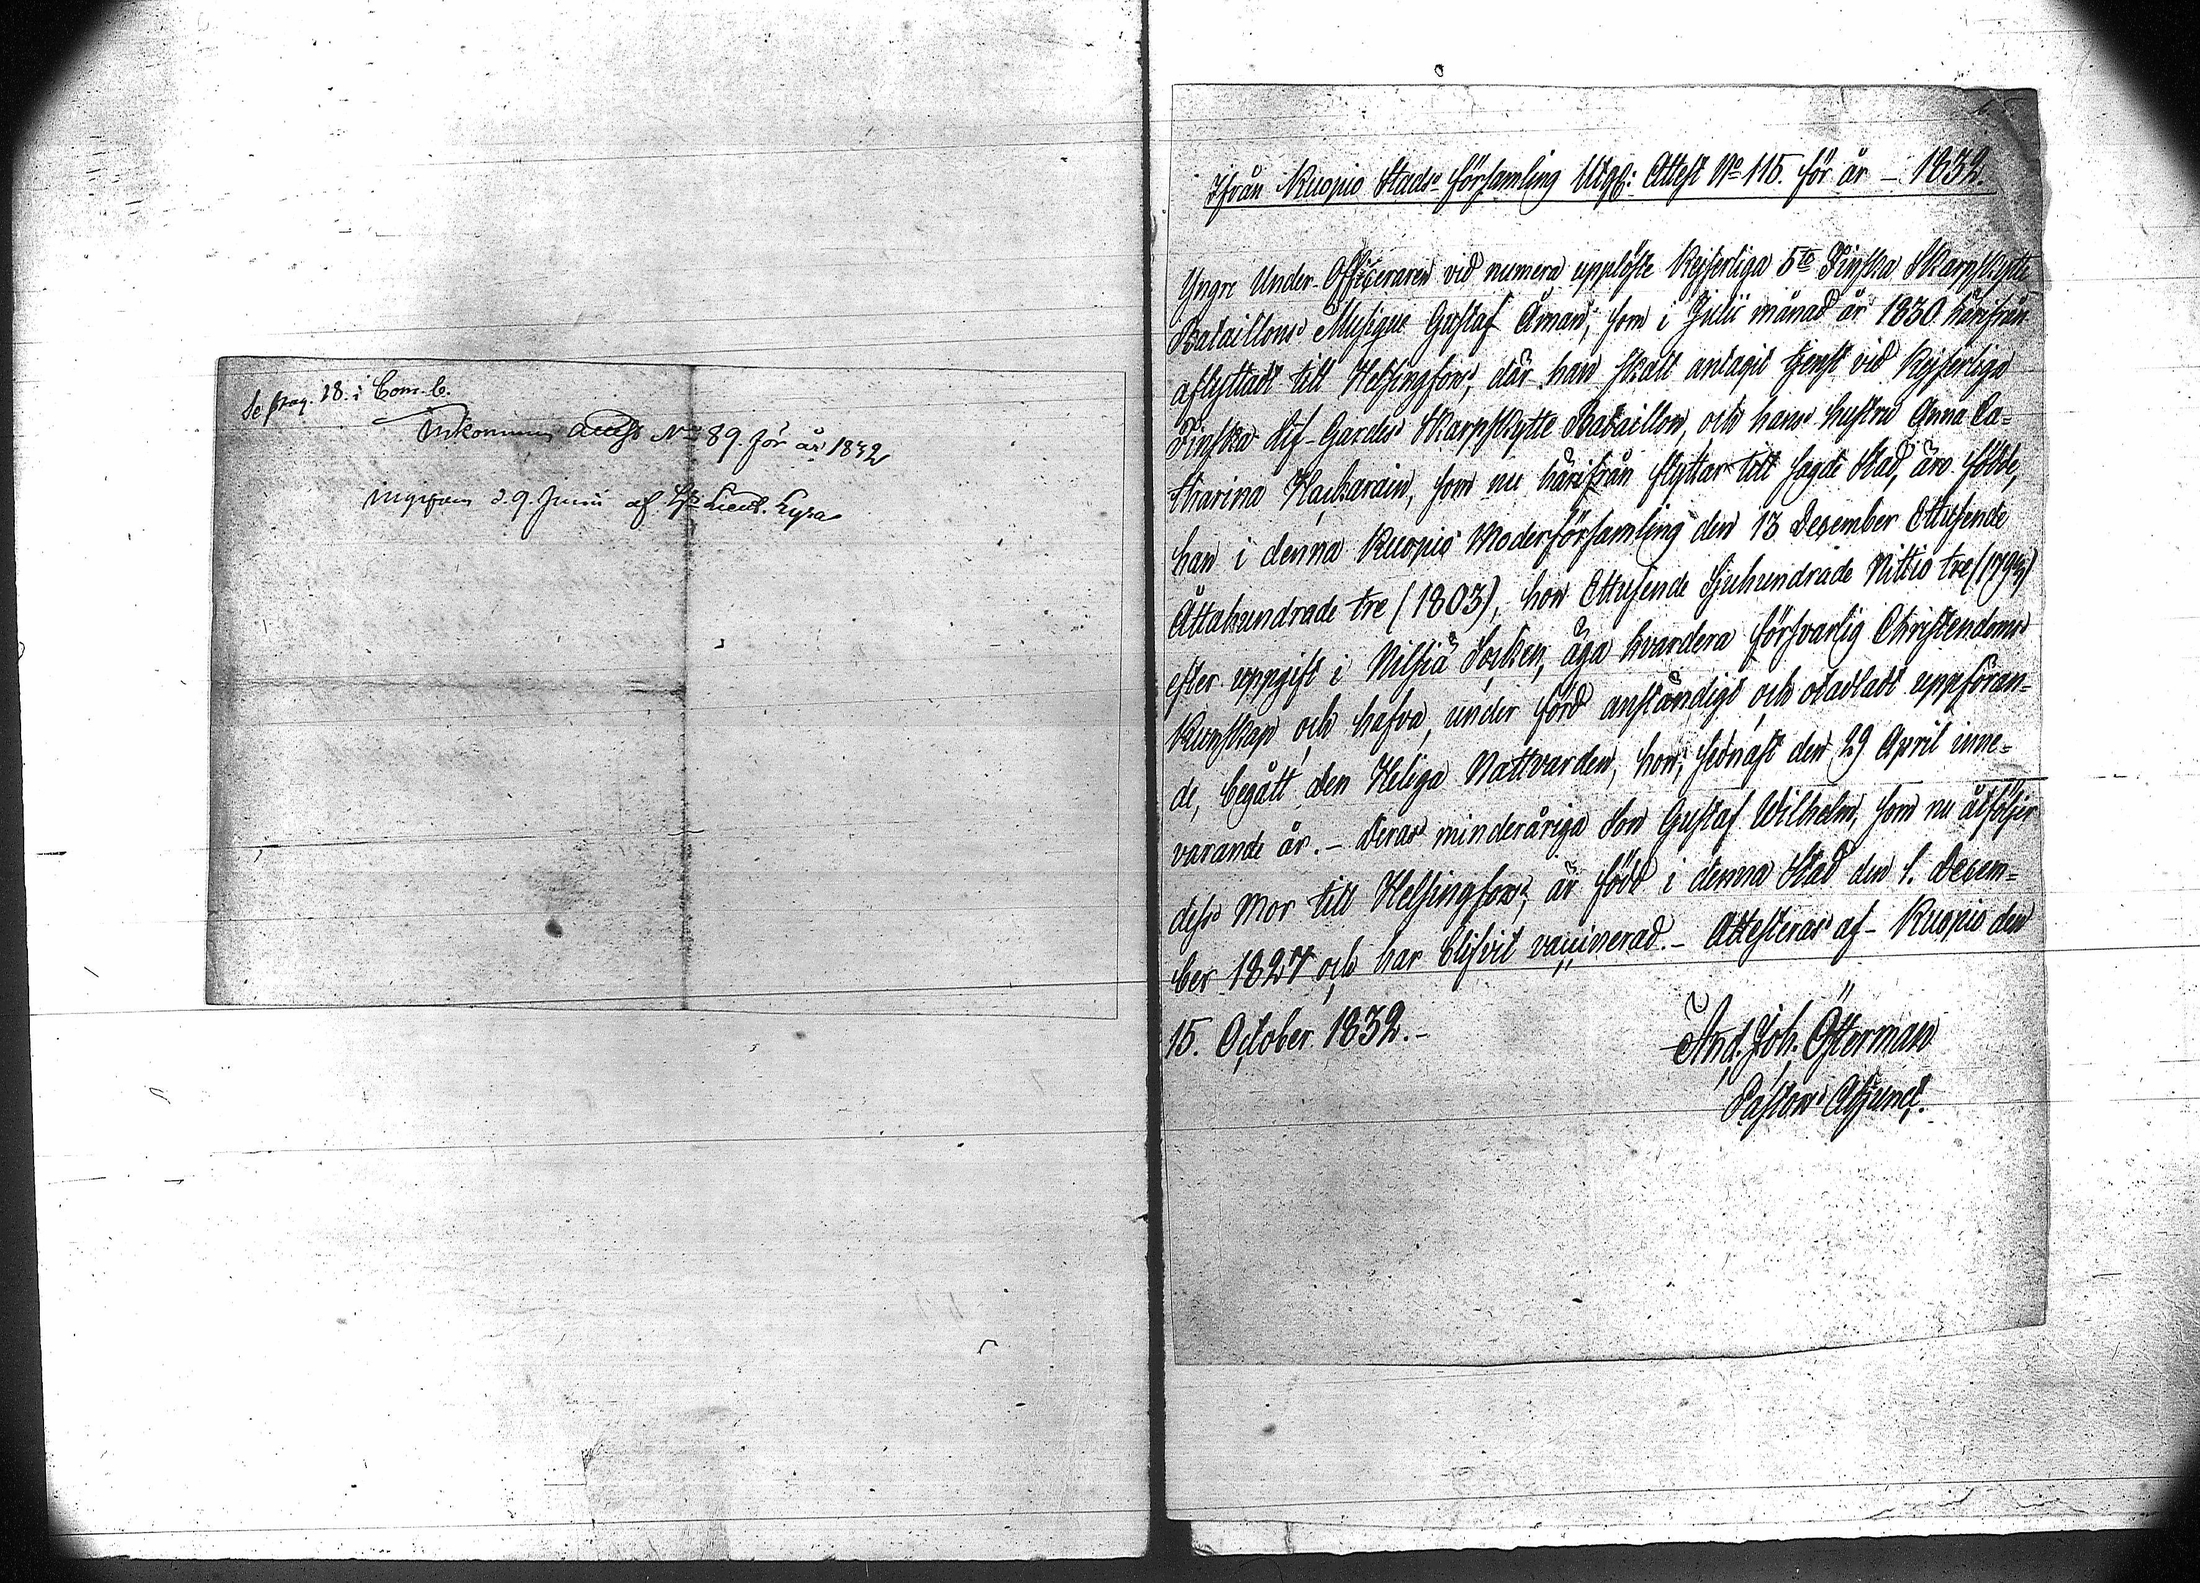 Se pag. 18. i Com. b.
Inkommen attest No 89. för år 1832
ingifven d. 9. Junii af
Ifrån Kuopio Stads-församling Utgf: Attest No 115. för år – 1832.
Yngre Under-Officeraren vid numera upplöste Kejserliga 5te Finska Skarpskytte
Bataillons Musique Gustaf Åman, som i Julii månad år 1830 härifrån
aflyttadt till Helsingfors, där han skall antagit tjenst vid Kejserliga
Finska Lif-Gardes Skarpskytte Bataillon, och hans hustru Anna Ca-
tharina Hackarain, som nu härifrån flyttar till sagde Stad, äro födde,
han i denna Kuopio Moderförsamling den 13 December Ettusende
Åttahundrade tre (1803), hon Ettusende Sjuhundrade Nittio tre (1793)
efter uppgift i Nilsiä Socken, äga hvardera försvarlig Christendoms
Kunskap och hafva, under förd anständigt och otadladt uppföran-
de, begått den Heliga Nattvarden, hon, sednast den 29 April inne-
varande år. – Deras minderåriga Son Gustaf Wilhelm, som nu åtföljer
dess Mor till Helsingfors, är född i denna Stad den 1. Decem-
ber 1827 och har blifvit vaccinerad. – Attesteras af – Kuopio den
15. October 1832. –
And. Joh. Österman
Pastors Adjunct.